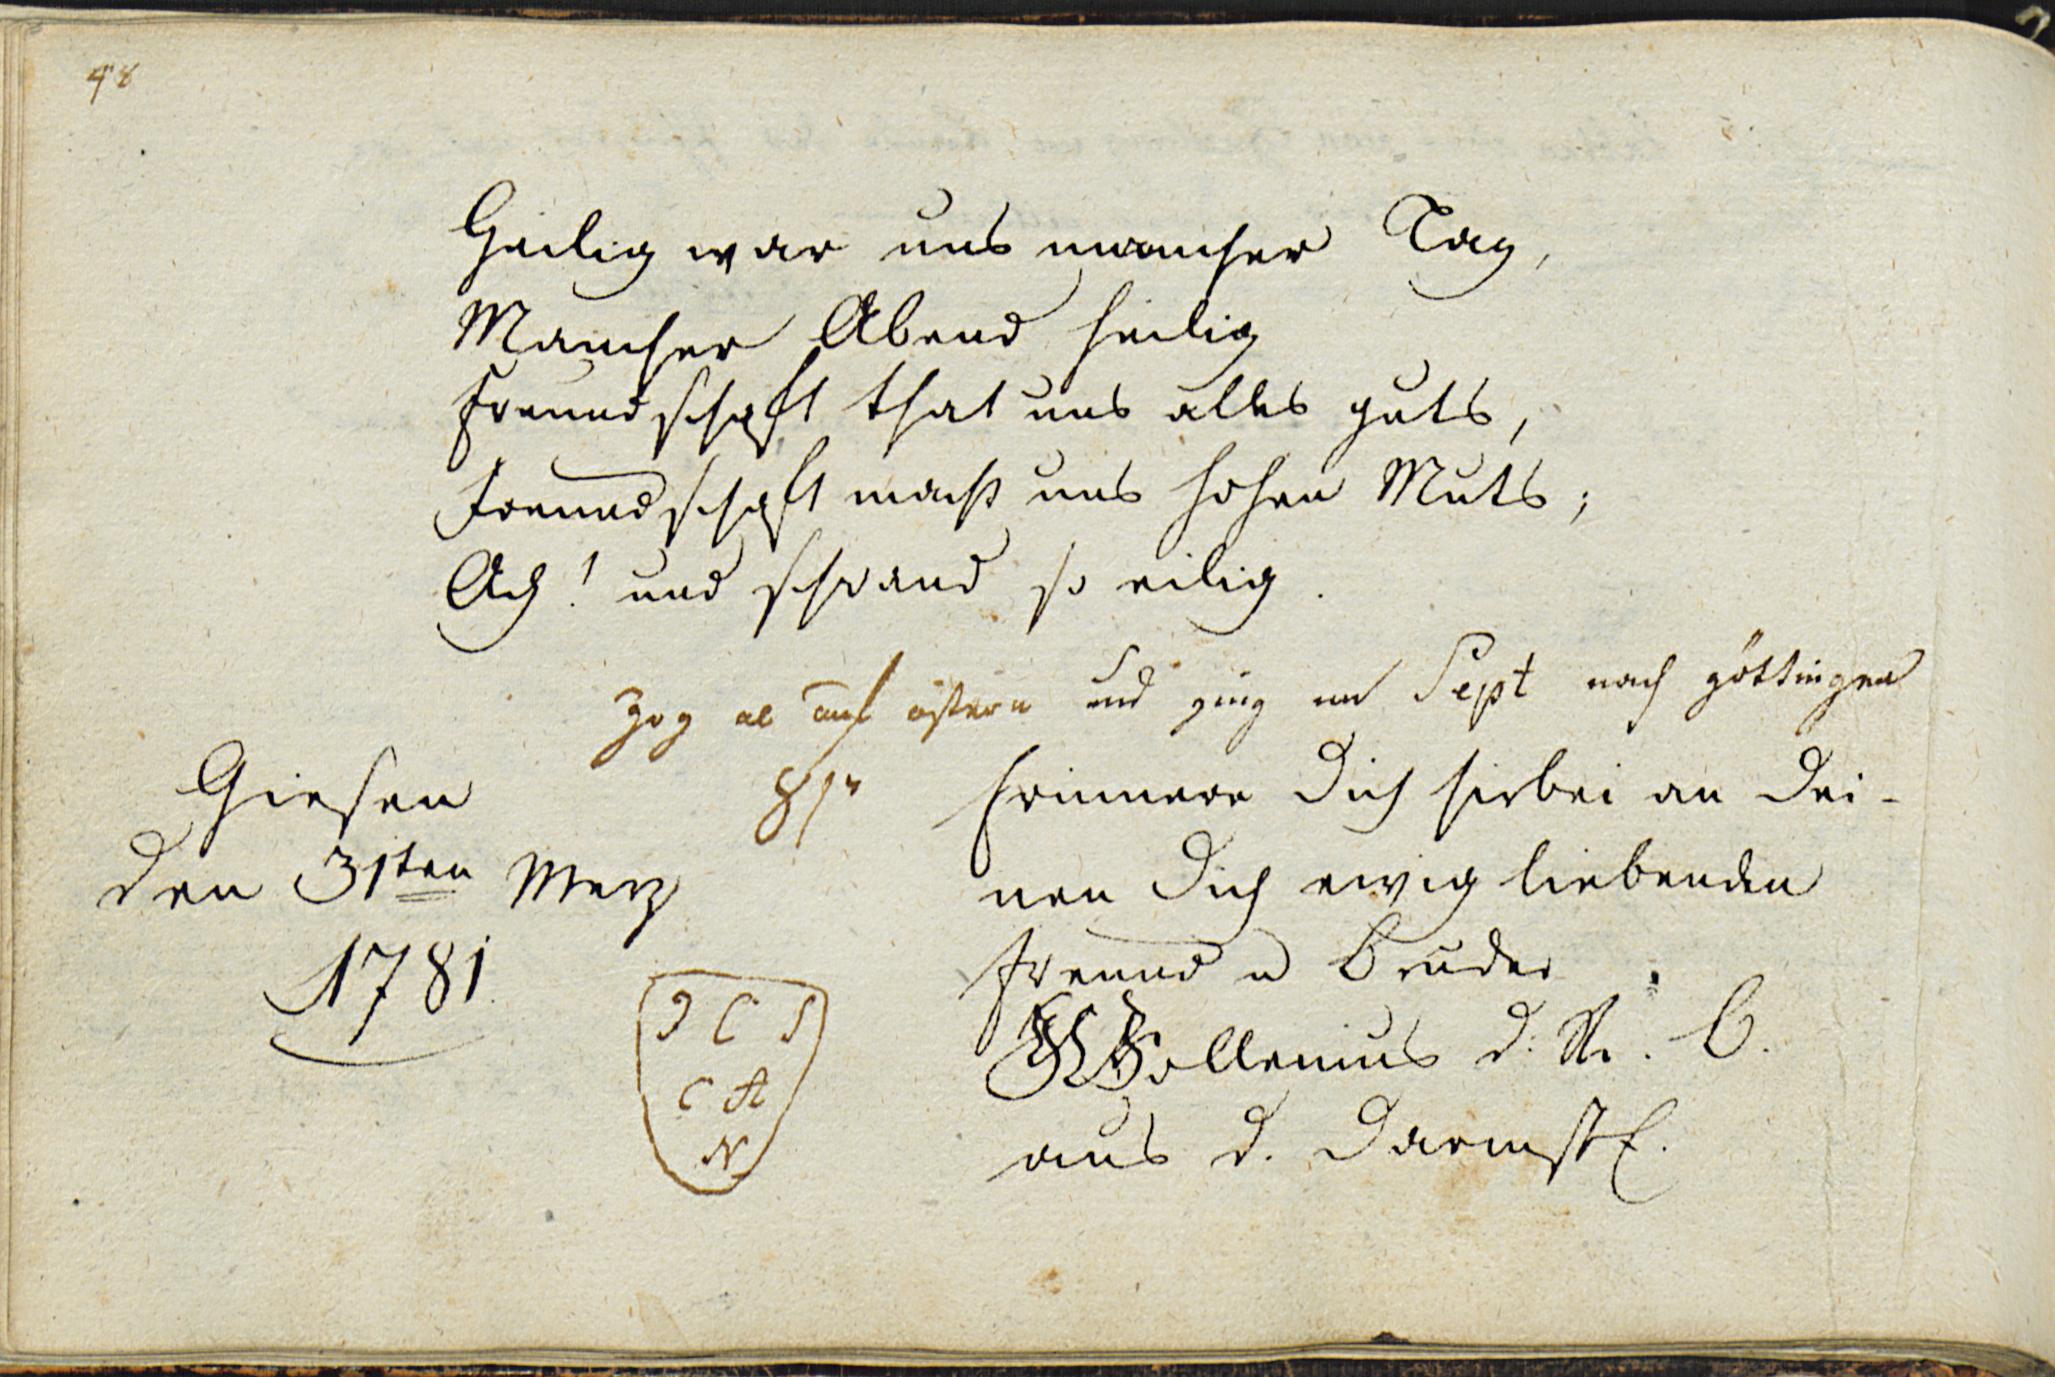 48
Heilig war uns mancher Tag,
Mancher Abend heilig
Freundschaft that uns alles guts,
Freundschaft macht uns hohen Muts;
Ach! und schwand so eilig.
Zog ab auf ostern und ging im Sept nach göttingen
81"
Giesen
den 31ten Merz
1781.
Erinnere Dich hirbei an Dei-
nen Dich ewig liebenden
Freund u Bruder
d. R. B.
aus d. Darmst.
J C S
C A
N